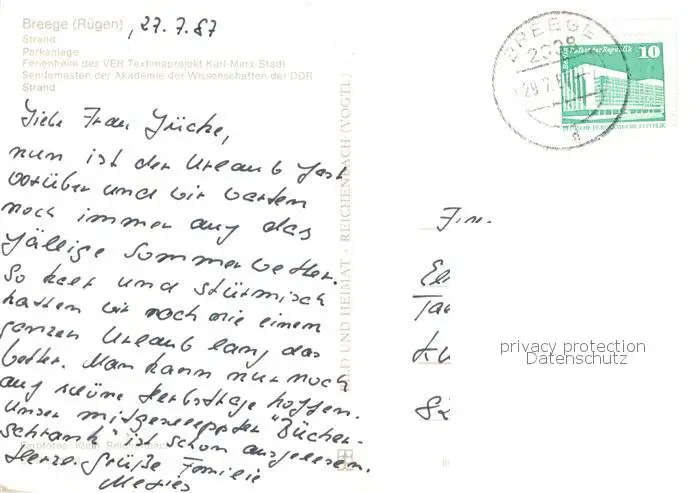 Breege (Rügen) , 27.7.87
Strand
Parkanlage
Ferienheim des VEB Textimaprojekt Karl-Marx-Stadt
Sendemasten der Akademie der Wissenschaften der DDR
Strand
Liebe Frau Jücke,
nun ist der Urlaub fast
vorüber und wir warten
noch immer auf das
fällige Sommerwetter.
So kalt und stürmisch
hatten wir noch nie einen
ganzen Urlaub lang das
Wetter. Man kann nur noch
auf schöne Herbsttage hoffen.
Unser mitgeschleppter "Bücher-
schrank" ist schon ausgelesen.
Herzl. Grüße Familie
Farbfotos: Klein, Reichenbach
BILD UND HEIMAT · REICHENBACH (VOGTL)
BREEGE
2338
10
Palast der Republik
DEUTSCHE DEMOKRATISCHE REPUBLIK
privacy protection
Datenschutz